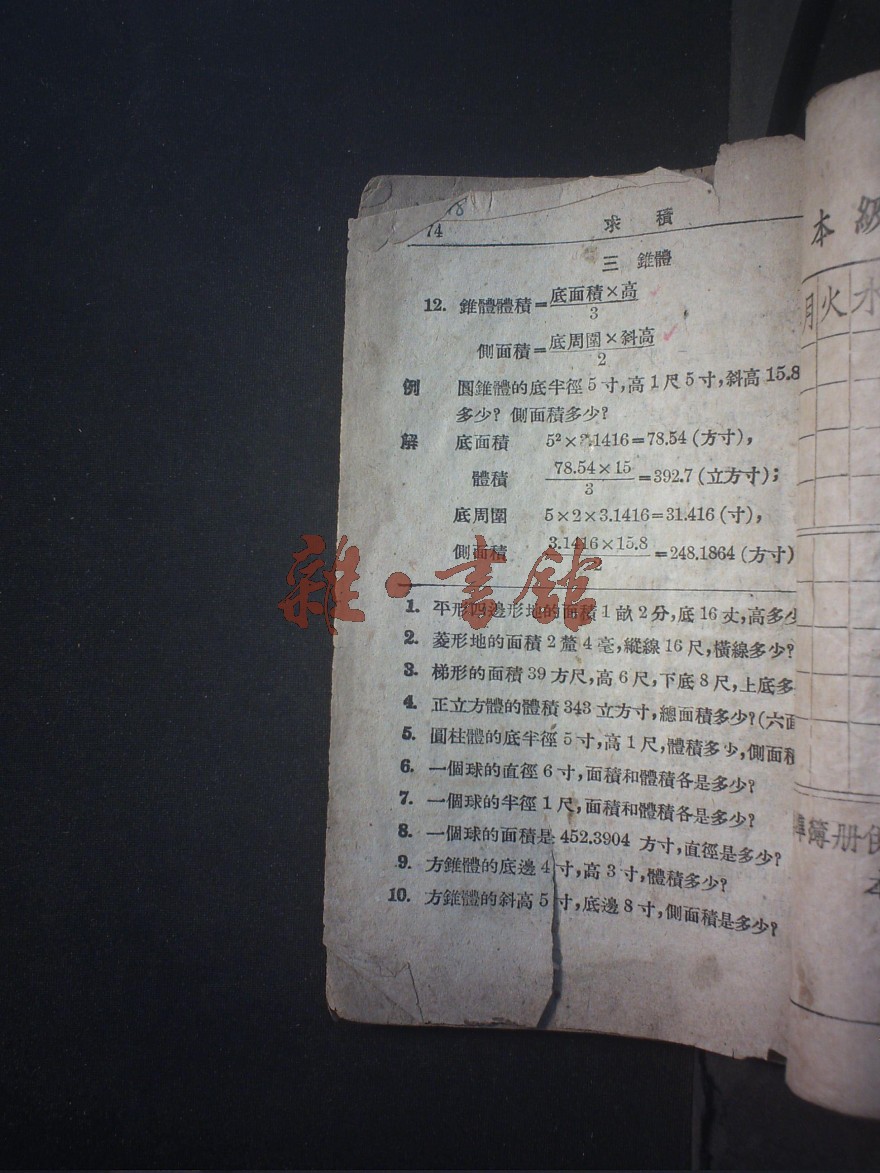 74
求積
三 錐體
12. 錐體體積=底面積×高/3
側面積=底周圍×斜高/2
例 圓錐體的底半徑5寸,高1尺5寸,斜高15.8
多少?側面積多少?
解 底面積 5²×3.1416=78.54(方寸),
體積 78.54×15/3=392.7(立方寸);
底周圍 5×2×3.1416=31.416(寸),
側面積 3.1416×15.8=248.1864(方寸)
1. 平形四邊形地的面積1畝2分,底16丈,高多少
2. 菱形地的面積2釐4毫,縱線16尺,橫線多少?
3. 梯形的面積39方尺,高6尺,下底8尺,上底多
4. 正立方體的體積343立方寸,總面積多少?(六面
5. 圓柱體的底半徑5寸,高1尺,體積多少,側面積
6. 一個球的直徑6寸,面積和體積各是多少?
7. 一個球的半徑1尺,面積和體積各是多少?
8. 一個球的面積是452.3904方寸,直徑是多少?
9. 方錐體的底邊4寸,高3寸,體積多少?
10. 方錐體的斜高5寸,底邊8寸,側面積是多少?
雜·書館
本級
月火水
簿册